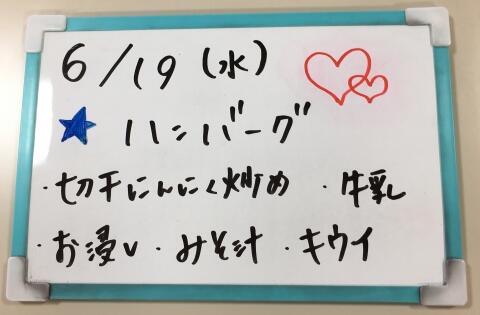 6/19(水)
★ハンバーグ
・切干にんにく炒め ・牛乳
・お浸し・みそ汁・キウイ